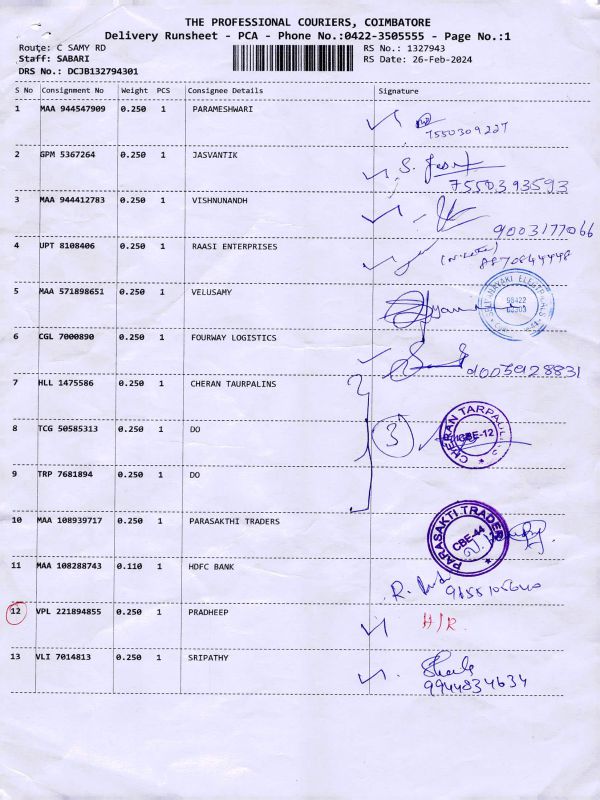 THE PROFESSIONAL COURIERS, COIMBATORE
Delivery Runsheet - PCA - Phone No.:0422-3505555 - Page No.:1
Route: C SAMY RD RS No.: 1327943
Staff: SABARI RS Date: 26-Feb-2024
DRS No.: DCJB132794301
S No Consignment No Weight PCS Consignee Details Signature
1 MAA 944547909 0.250 1 PARAMESHWARI
7550309227
2 GPM 5367264 0.250 1 JASVANTIK
7550393593
3 MAA 944412783 0.250 1 VISHNUNANDH
9003177066
4 UPT 8108406 0.250 1 RAASI ENTERPRISES
8870844448
5 MAA 571898651 0.250 1 VELUSAMY
6 CGL 7000890 0.250 1 FOURWAY LOGISTICS
9003928831
7 HLL 1475586 0.250 1 CHERAN TAURPALINS
8 TCG 50585313 0.250 1 DO 3
CHERAN TARPAULINS
CBE-12
9 TRP 7681894 0.250 1 DO
10 MAA 108939717 0.250 1 PARASAKTHI TRADERS
PARASAKTI TRADERS
CBE-44
11 MAA 108288743 0.110 1 HDFC BANK
9655105640
12 VPL 221894855 0.250 1 PRADHEEP H/R
13 VLI 7014813 0.250 1 SRIPATHY
9944834634